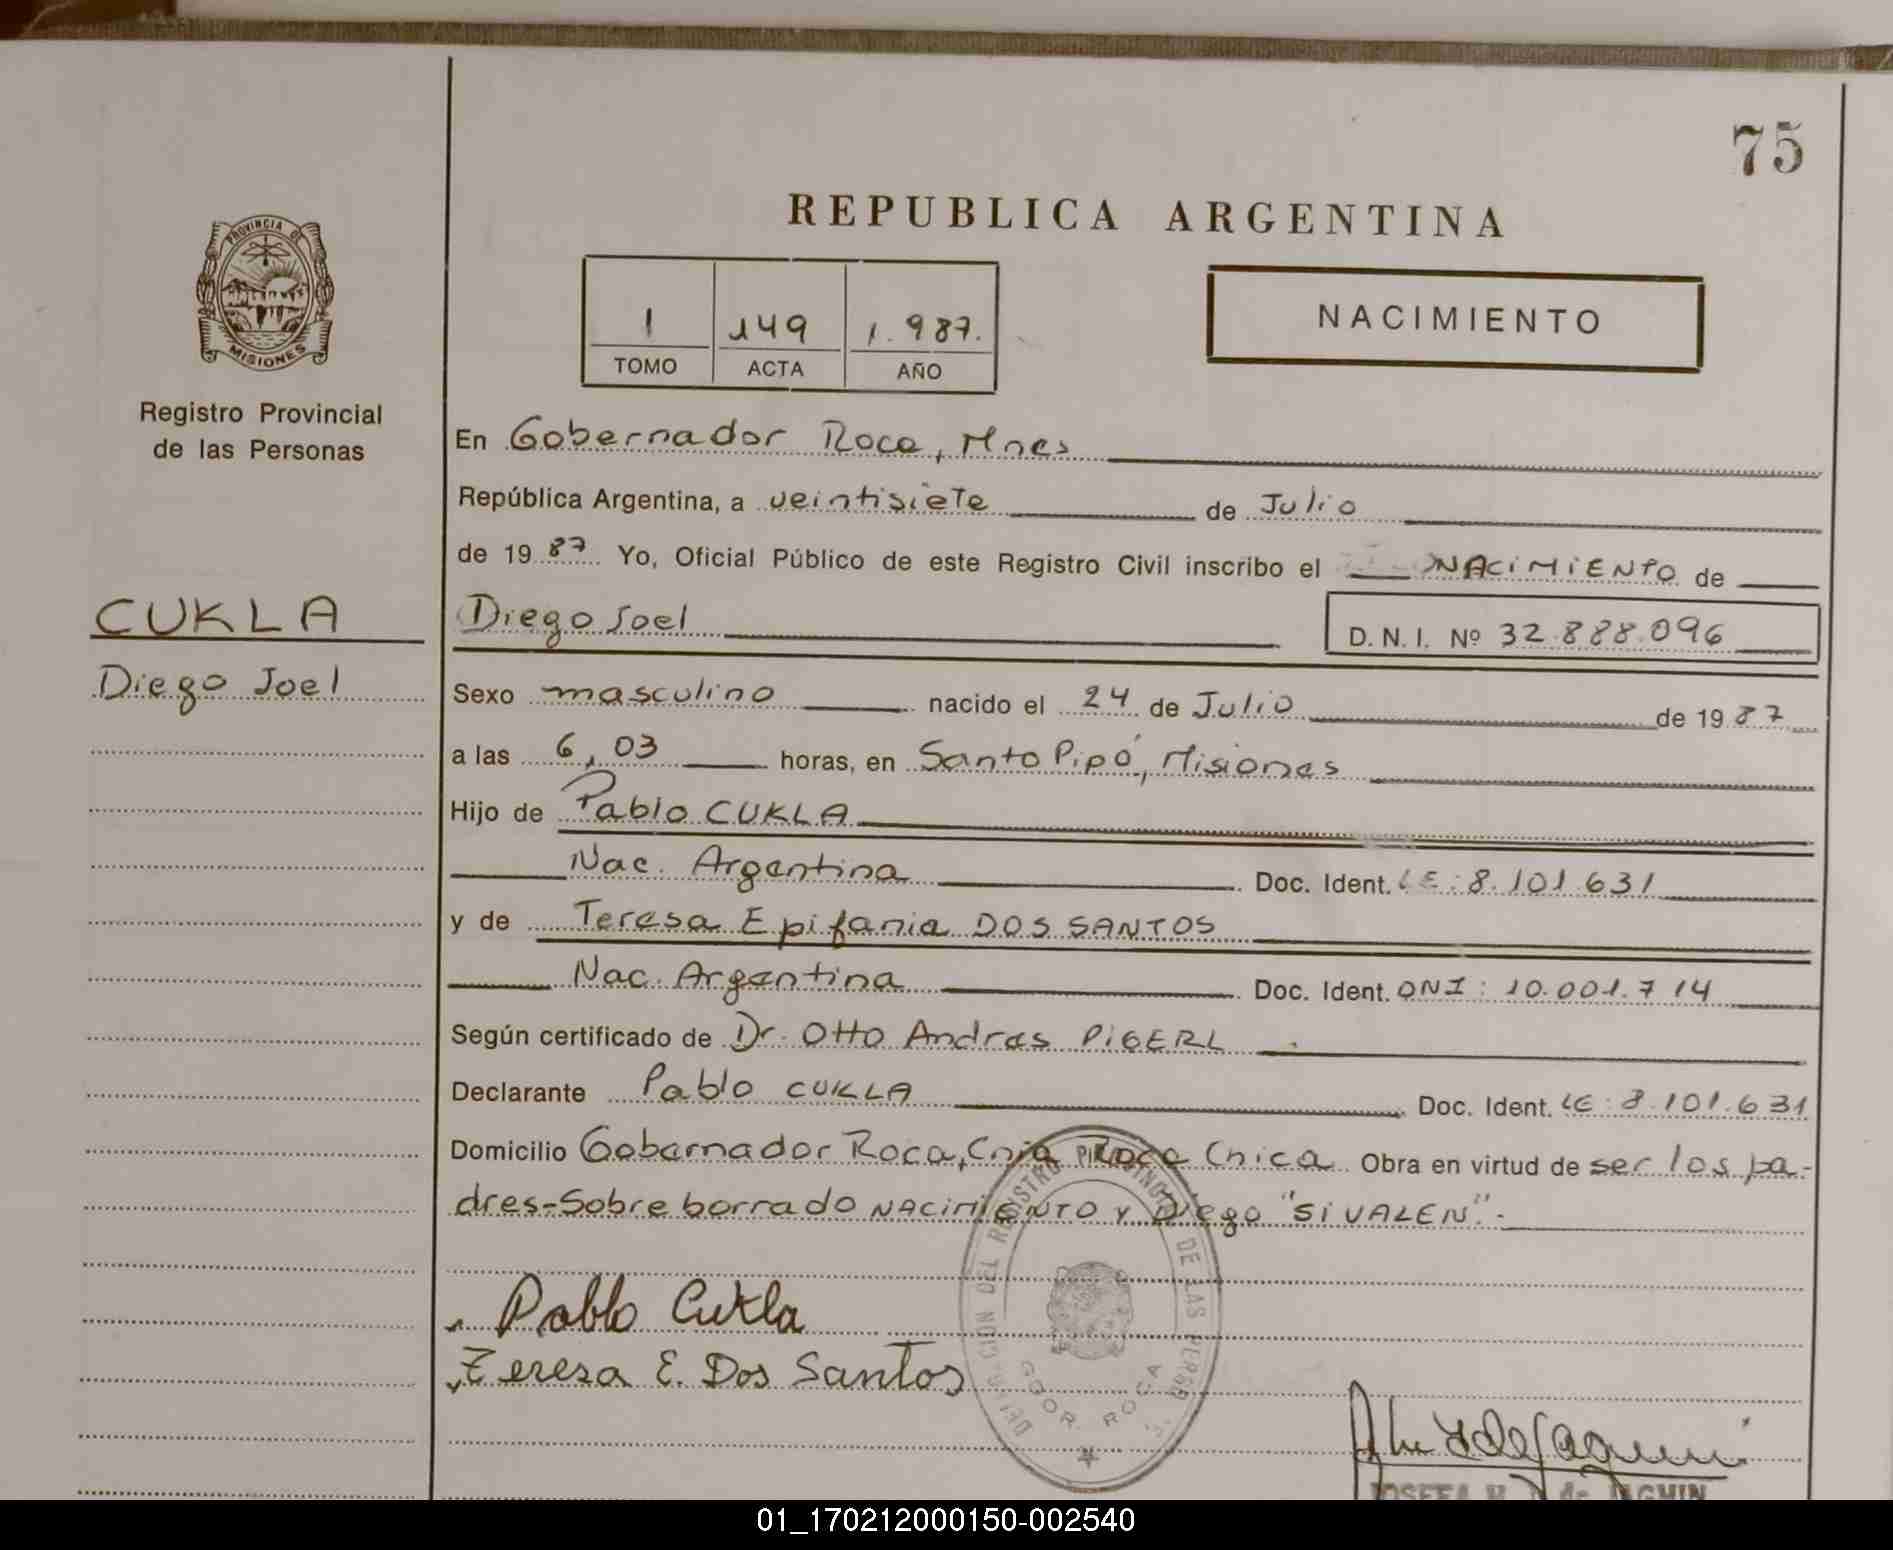 75
REPUBLICA ARGENTINA
PROVINCIA DE
MISIONES
1 149 1.987.
TOMO ACTA AÑO
NACIMIENTO
Registro Provincial
de las Personas
En Gobernador Roca, Mnes
República Argentina, a veintisiete de Julio
de 1987 Yo, Oficial Público de este Registro Civil inscribo el NACIMIENTO de
CUKLA
Diego Joel
Diego Joel D.N.I. Nº 32.888.096
Sexo masculino nacido el 24 de Julio de 1987
a las 6,03 horas, en Santo Pipó, Misiones
Hijo de Pablo CUKLA
Nac. Argentina Doc. Ident. LE: 8.101.631
y de Teresa Epifania DOS SANTOS
Nac. Argentina Doc. Ident. DNI: 10.001.714
Según certificado de Dr. Otto Andres PIGERL
Declarante Pablo CUKLA Doc. Ident. LE: 8.101.631
Domicilio Gobernador Roca, Cnia Roca Chica Obra en virtud de ser los pa-
dres-Sobre borrado NACIMIENTO y Diego "SI VALEN".-
Pablo Cukla
Teresa E. Dos Santos
DELEGACION DEL REGISTRO PROVINCIAL DE LAS PERSO
GDOR. ROCA
JOSEFA
01_170212000150-002540